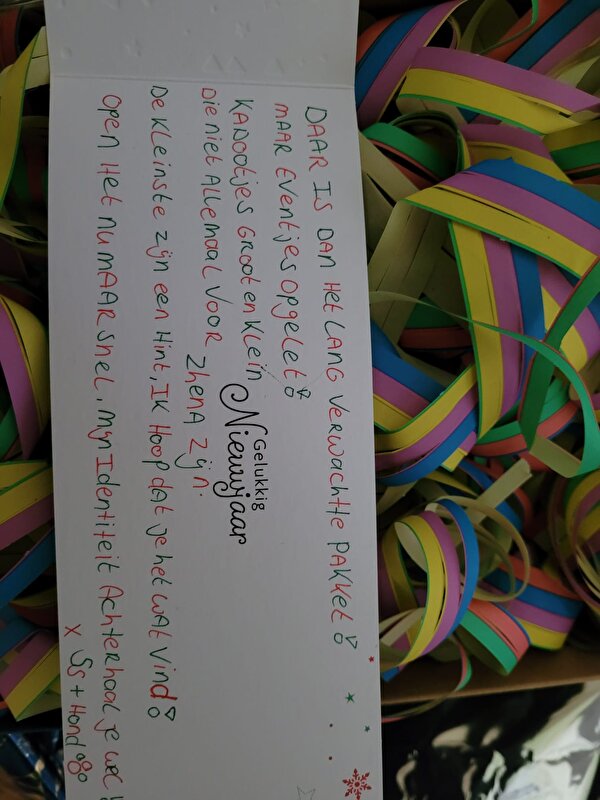 DAAR IS DAN HET LANG VERWACHTE PAKKET!
MAAR EVENTJES OPGELET!
KADOOTJES GROOT EN KLEIN
DIE NIET ALLEMAAL VOOR ZHENA ZIJN.
Gelukkig
Nieuwjaar
DE KLEINSTE ZIJN EEN HINT, IK HOOP DAT JE HET WAT VIND!
OPEN HET NU MAAR SNEL, MIJN IDENTITEIT ACHTERHAAL JE WEL!
X SS + HOND